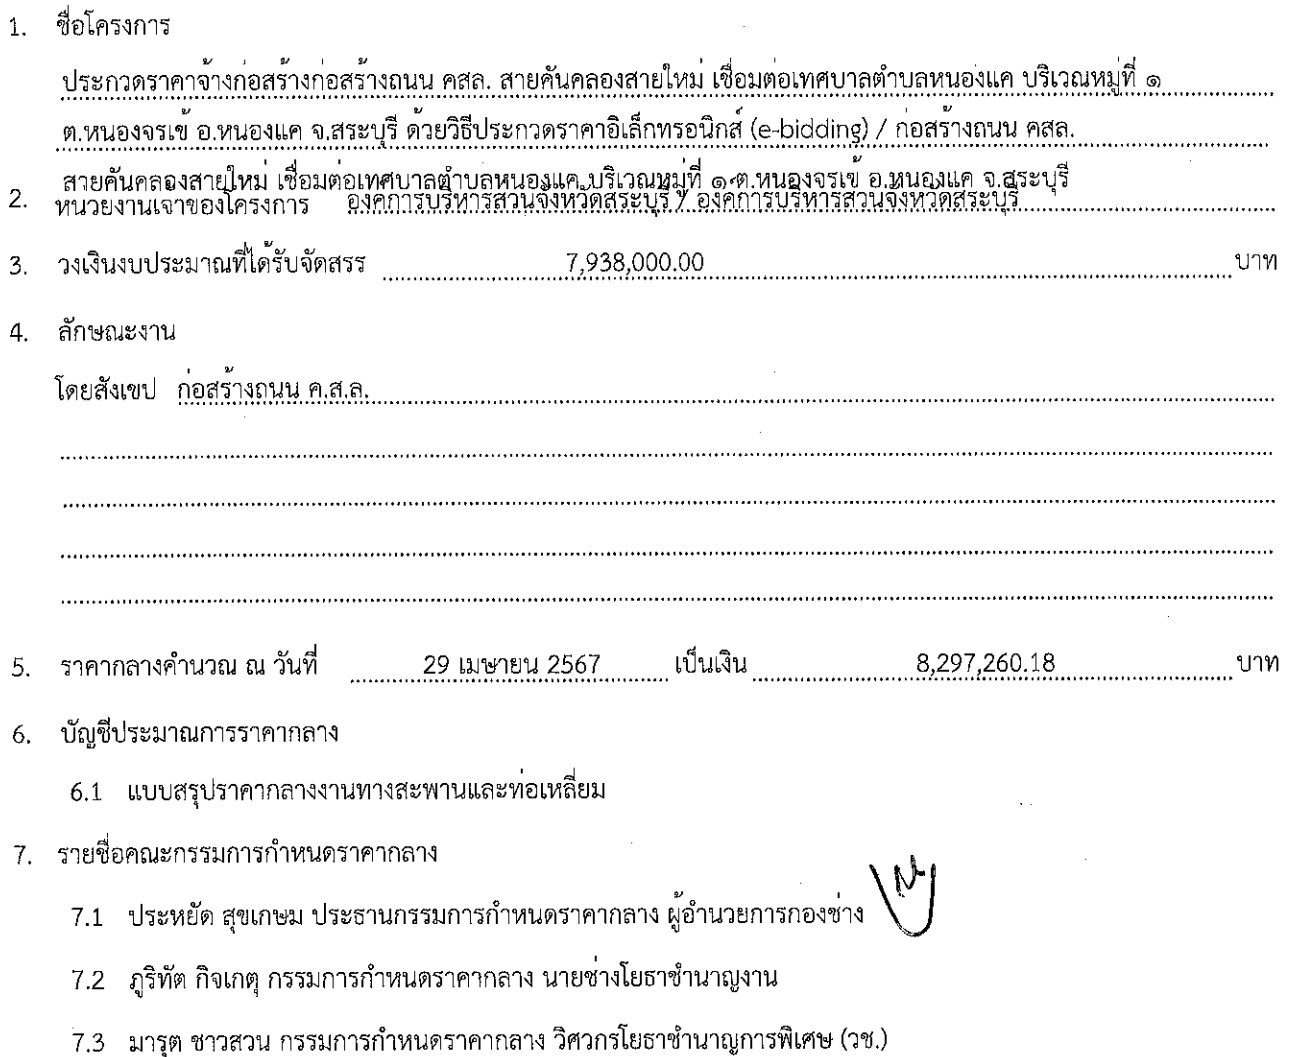 1. ชื่อโครงการ
ประกวดราคาจ้างก่อสร้างก่อสร้างถนน คสล. สายคันคลองสายใหม่ เชื่อมต่อเทศบาลตำบลหนองแค บริเวณหมู่ที่ ๑
ต.หนองจรเข้ อ.หนองแค จ.สระบุรี ด้วยวิธีประกวดราคาอิเล็กทรอนิกส์ (e-bidding) / ก่อสร้างถนน คสล.
สายคันคลองสายใหม่ เชื่อมต่อเทศบาลตำบลหนองแค บริเวณหมู่ที่ ๑ ต.หนองจรเข้ อ.หนองแค จ.สระบุรี
2. หน่วยงานเจ้าของโครงการ องค์การบริหารส่วนจังหวัดสระบุรี / องค์การบริหารส่วนจังหวัดสระบุรี
3. วงเงินงบประมาณที่ได้รับจัดสรร 7,938,000.00 บาท
4. ลักษณะงาน
โดยสังเขป ก่อสร้างถนน ค.ส.ล.
5. ราคากลางคำนวณ ณ วันที่ 29 เมษายน 2567 เป็นเงิน 8,297,260.18 บาท
6. บัญชีประมาณการราคากลาง
6.1 แบบสรุปราคากลางงานทางสะพานและท่อเหลี่ยม
7. รายชื่อคณะกรรมการกำหนดราคากลาง
7.1 ประหยัด สุขเกษม ประธานกรรมการกำหนดราคากลาง ผู้อำนวยการกองช่าง
7.2 ภูริทัต กิจเกตุ กรรมการกำหนดราคากลาง นายช่างโยธาชำนาญงาน
7.3 มารุต ชาวสวน กรรมการกำหนดราคากลาง วิศวกรโยธาชำนาญการพิเศษ (วช.)